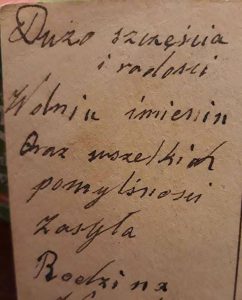 Dużo szczęścia
i radości
W dniu imienin
Oraz wszelkich
pomyślności
Zasyła
Rodzina